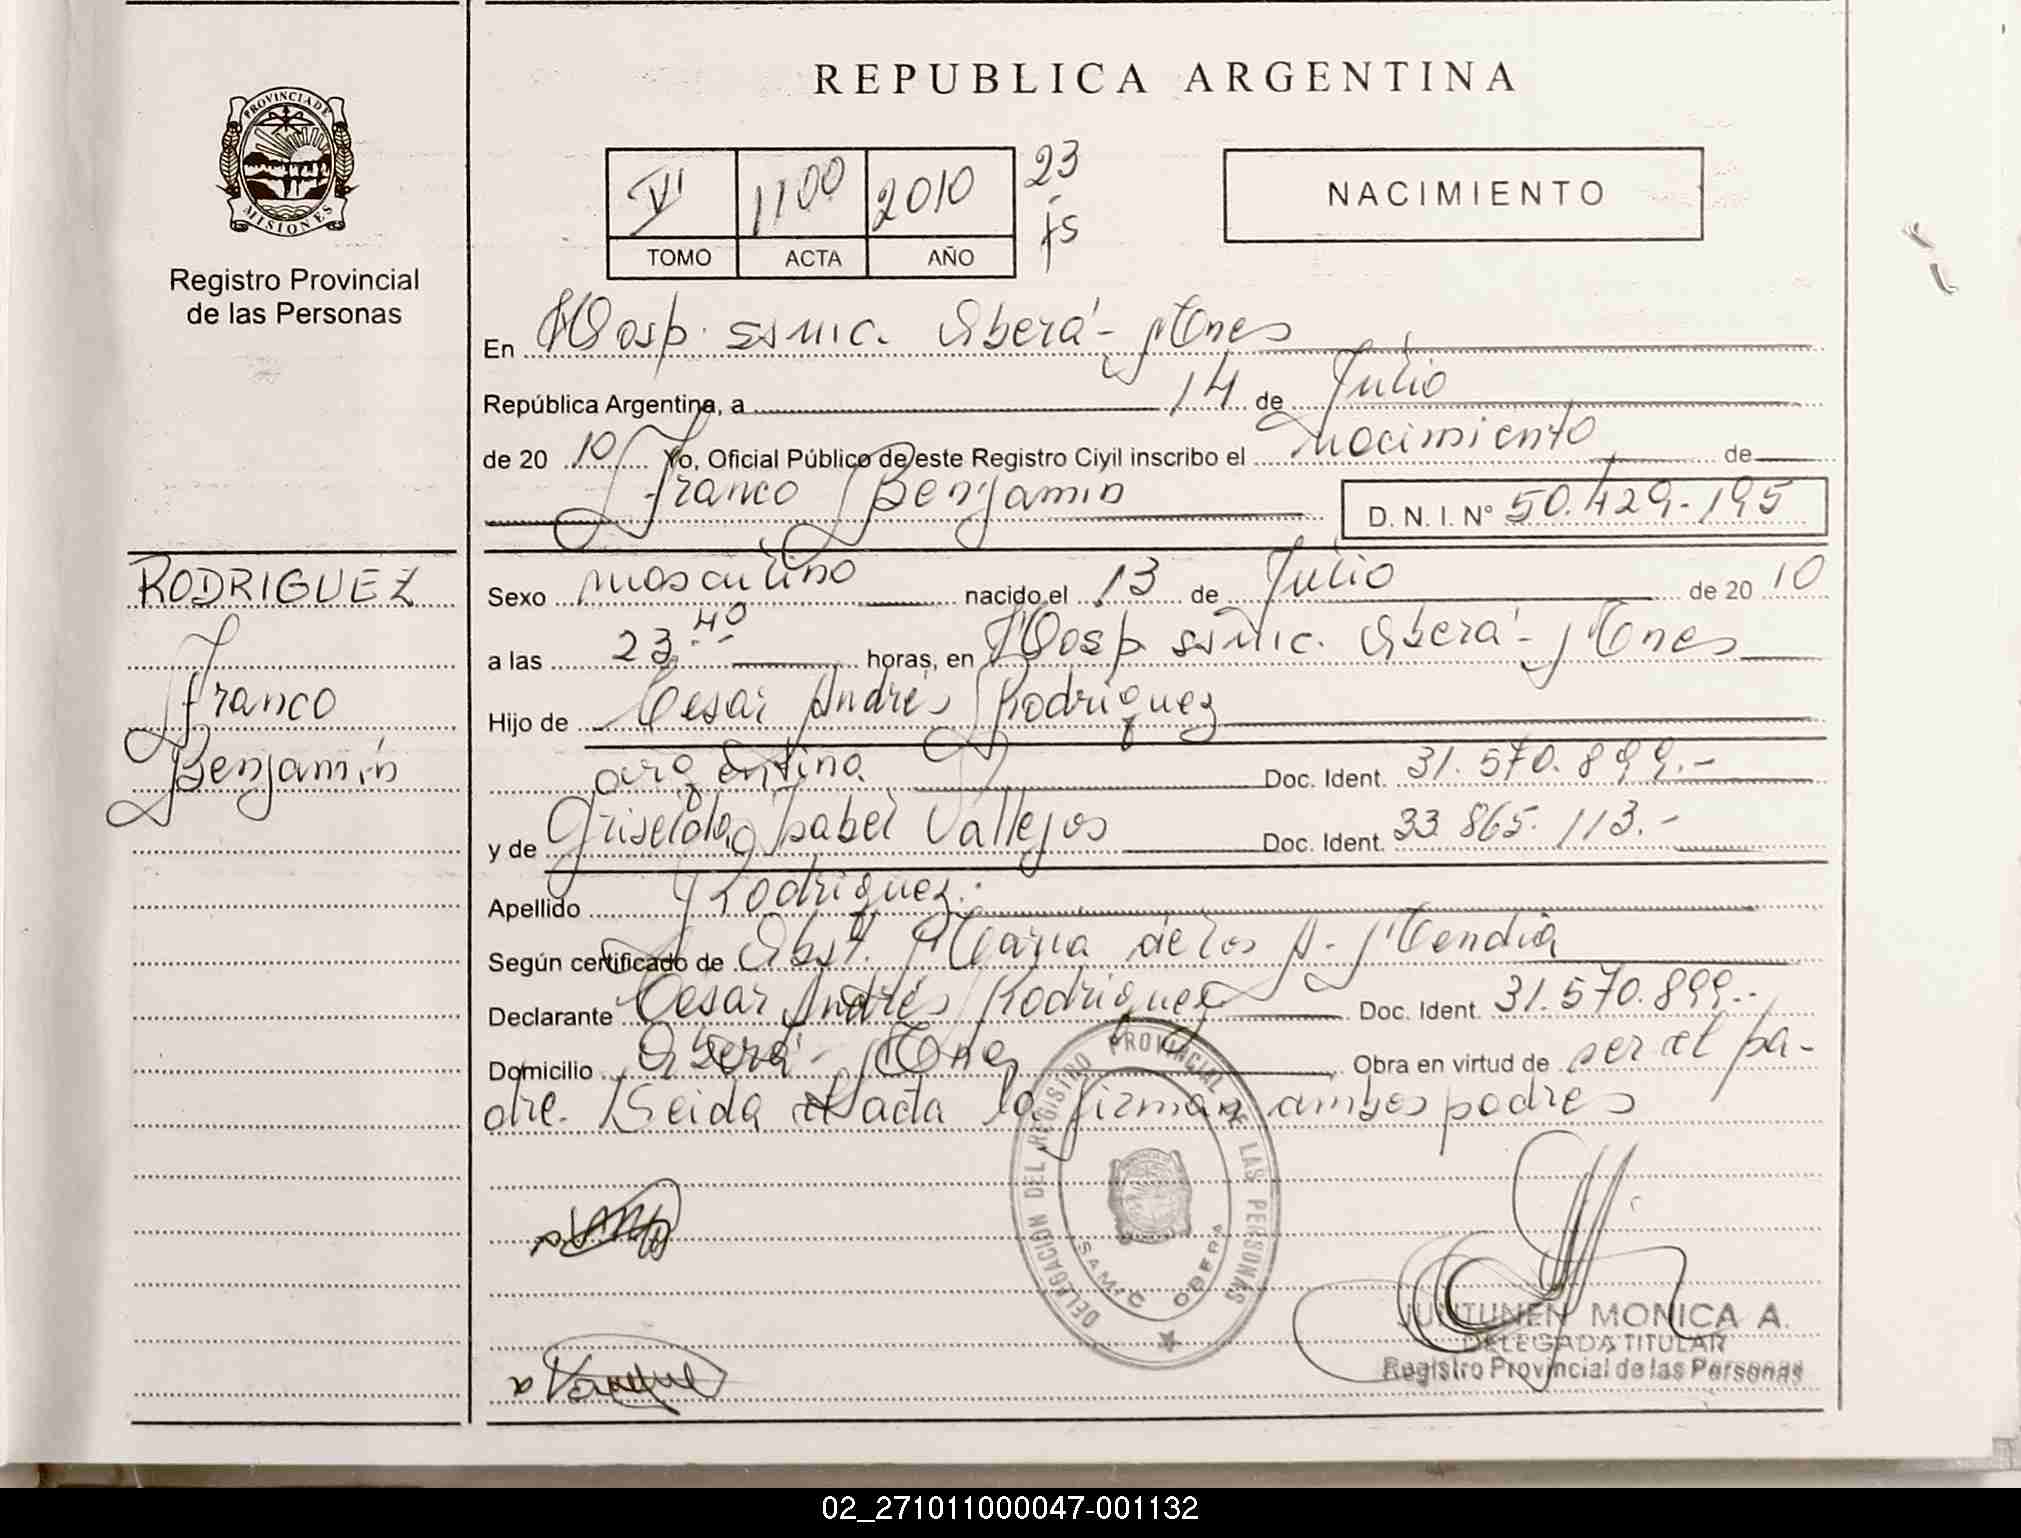 REPUBLICA ARGENTINA
PROVINCIA DE
MISIONES
Registro Provincial
de las Personas
VI 1100 2010 23
fs
TOMO ACTA AÑO
NACIMIENTO
En Hosp. SSMIC. Oberá - Mnes
República Argentina, a 14 de Julio
de 20 10 Yo, Oficial Público de este Registro Civil inscribo el Nacimiento de
Franco Benjamin D.N.I. Nº 50.429-195
RODRIGUEZ
Franco
Benjamín
Sexo masculino nacido el 13 de Julio de 20 10
a las 23.40 horas, en Hosp SSMIC. Oberá - Mnes
Hijo de Cesar Andrés Rodriguez
argentino Doc. Ident. 31.570.899.-
y de Griselda Isabel Vallejos Doc. Ident. 33 865.113.-
Apellido Rodriguez.
Según certificado de Obst. Maria de los A. Mendia
Declarante Cesar Andrés Rodriguez Doc. Ident. 31.570.899.-
Domicilio Oberá - Mnes Obra en virtud de ser el pa-
dre. Leida el acta la firman ambos padres
DELEGACION DEL REGISTRO PROVINCIAL DE LAS PERSONAS
SAMIC OBERA
JUNTUNEN MONICA A.
DELEGADA TITULAR
Registro Provincial de las Personas
02_271011000047-001132